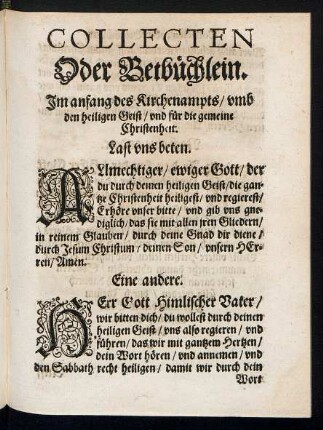 COLLECTEN
Oder Betbüchlein.
Im anfang des Kirchenampts/ vmb
den heiligen Geist/ vnd für die gemeine
Christenheit.
Last vns beten.
ALlmechtiger/ ewiger Gott/ der
du durch deinen heiligen Geist/ die gan-
tze Christenheit heiligest/ vnd regierest/
Erhöre vnser bitte/ vnd gib vns gne-
diglich/ das sie mit allen jren Gliedern/
in reinem Glauben/ durch deine Gnad dir diene/
durch Jesum Christum/ deinen Son/ vnsern HEr-
ren/ Amen.
Eine andere.
HErr Gott Himlischer Vater/
wir bitten dich/ du wollest durch deinen
heiligen Geist/ vns also regieren/ vnd
führen/ das wir mit gantzem Hertzen/
dein Wort hören/ vnd annemen/ vnd
den Sabbath recht heiligen/ damit wir durch dein
Wort